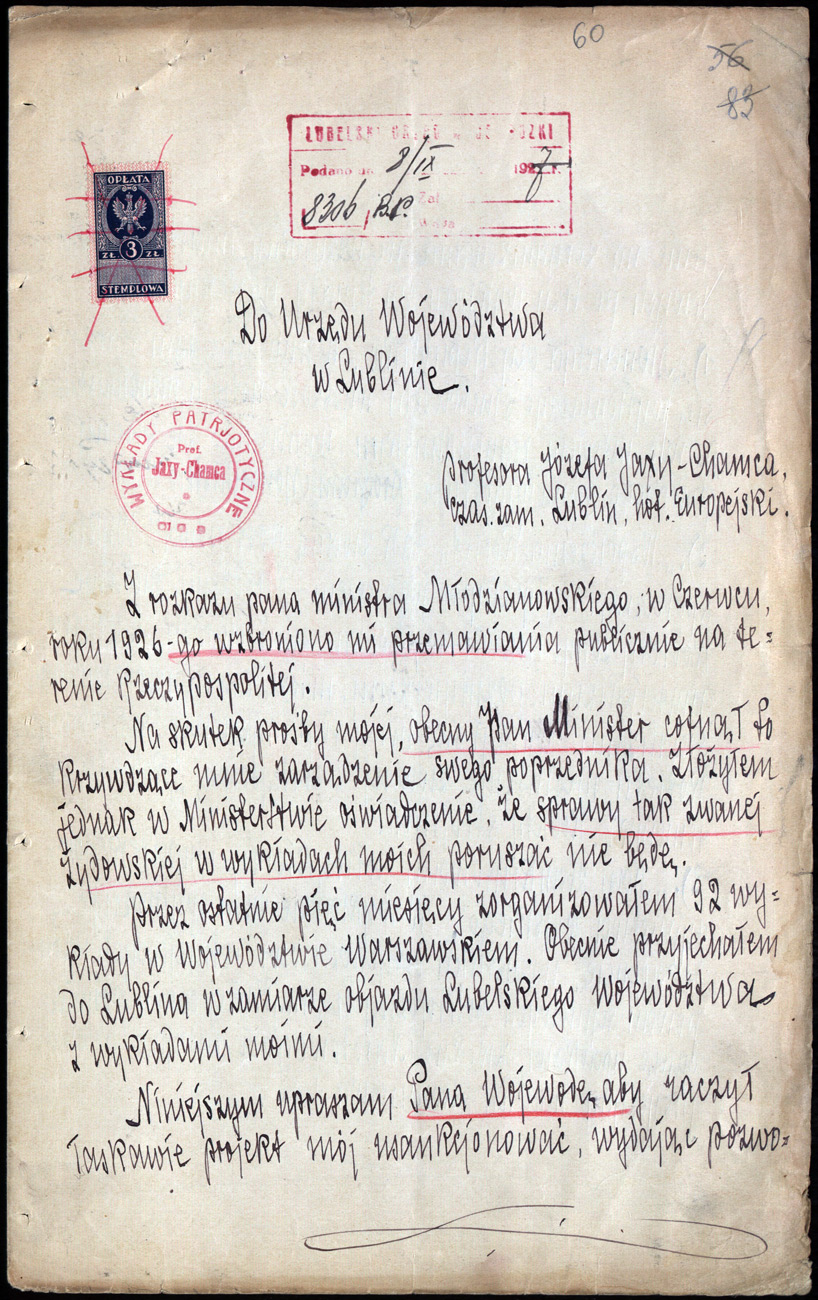 60
56
83
LUBELSKI URZĄD
Podano 8/IX 1927 r.
8306 B.P. Zał
OPŁATA
ZŁ. 3 ZŁ
STEMPLOWA
Do Urzędu Województwa
w Lublinie.
WYKŁADY PATRJOTYCZNE
Prof.
Jaxy-Chamca
profesora Józefa Jaxy-Chamca,
czas. zam. Lublin, hot. Europejski.
Z rozkazu pana ministra Młodzianowskiego, w Czerwcu,
roku 1926-go wzbroniono mi przemawiania publicznie na te=
renie Rzeczypospolitej.
Na skutek prośby mojej, obecny Pan Minister cofnął to
krzywdzące mnie zarządzenie swego poprzednika. Złożyłem
jednak w Ministerstwie oświadczenie, że sprawy tak zwanej
Żydowskiej w wykładach moich poruszać nie będę.
Przez ostatnie pięć miesięcy zorganizowałem 92 wy=
kłady w Województwie Warszawskiem. Obecnie przyjechałem
do Lublina w zamiarze objazdu Lubelskiego Województwa
z wykładami moimi.
Niniejszym upraszam Pana Wojewodę, aby raczył
łaskawie projekt mój usankcjonować, wydając pozwo=